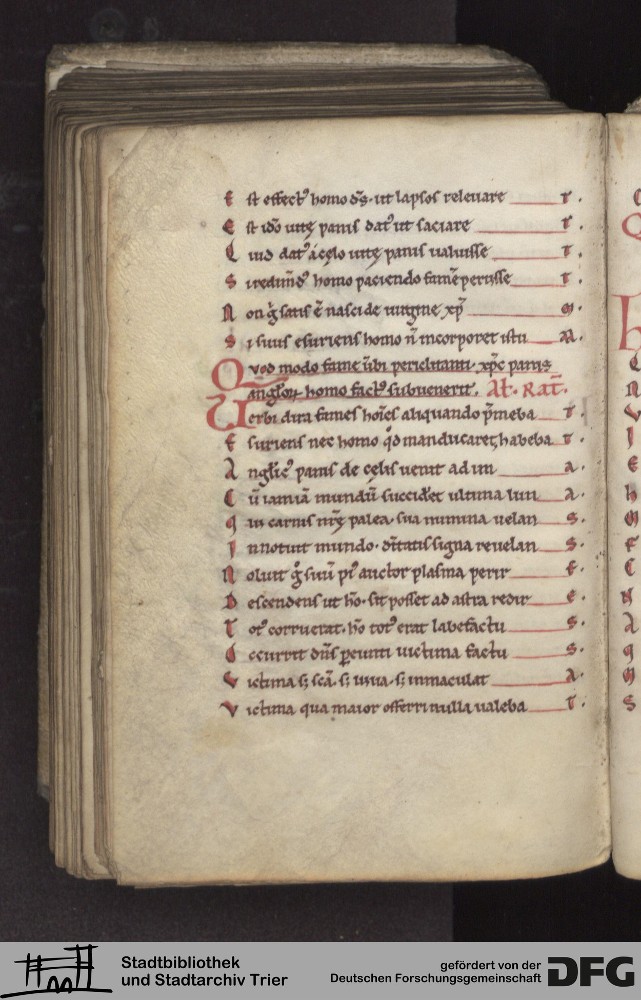 E st effect᷒ homo ds̄. ut lapsos releuare T.
E st ido uitę panis dat᷒ ut saciare T.
Q uid dat᷒ a cęlo uitę panis ualuisse T.
S i homo paciendo famē perisse T.
N on g̊ satis ē nasci de uirgine xp̄ M.
S i suus esuriens homo n̄ incorporet istu M.
Q vod modo fame ūbi periclitanti. xp̄c panis
anglor̄ homo fact᷒ subuenerit. Alt. Rat.
V erbi dira fames hoīes aliquando p̄meba T.
E suriens nec homo qd̊ manducaret habeba T.
A nglic᷒ panis de cęlis uenit ad im A.
C ū iam iā mundū succideret ultima lim A.
Q ui carnis nr̄ę palea sua numina uelan S.
I nnotuit mundo. dītatis signa reuelan S.
N oluit g̊ suū pi᷒ auctor plasma perir E.
D escendens ut hō. sit posset ad astra redir E.
T ot᷒ corruerat. hō tot᷒ erat labefactu S.
O ccurrit dn̄s peunti uictima factu S.
V ictima s; scā. s; uiua. s; inmaculat A.
V ictima qua maior offerri nulla ualeba T.
Stadtbibliothek
und Stadtarchiv Trier
gefördert von der
Deutschen Forschungsgemeinschaft
DFG